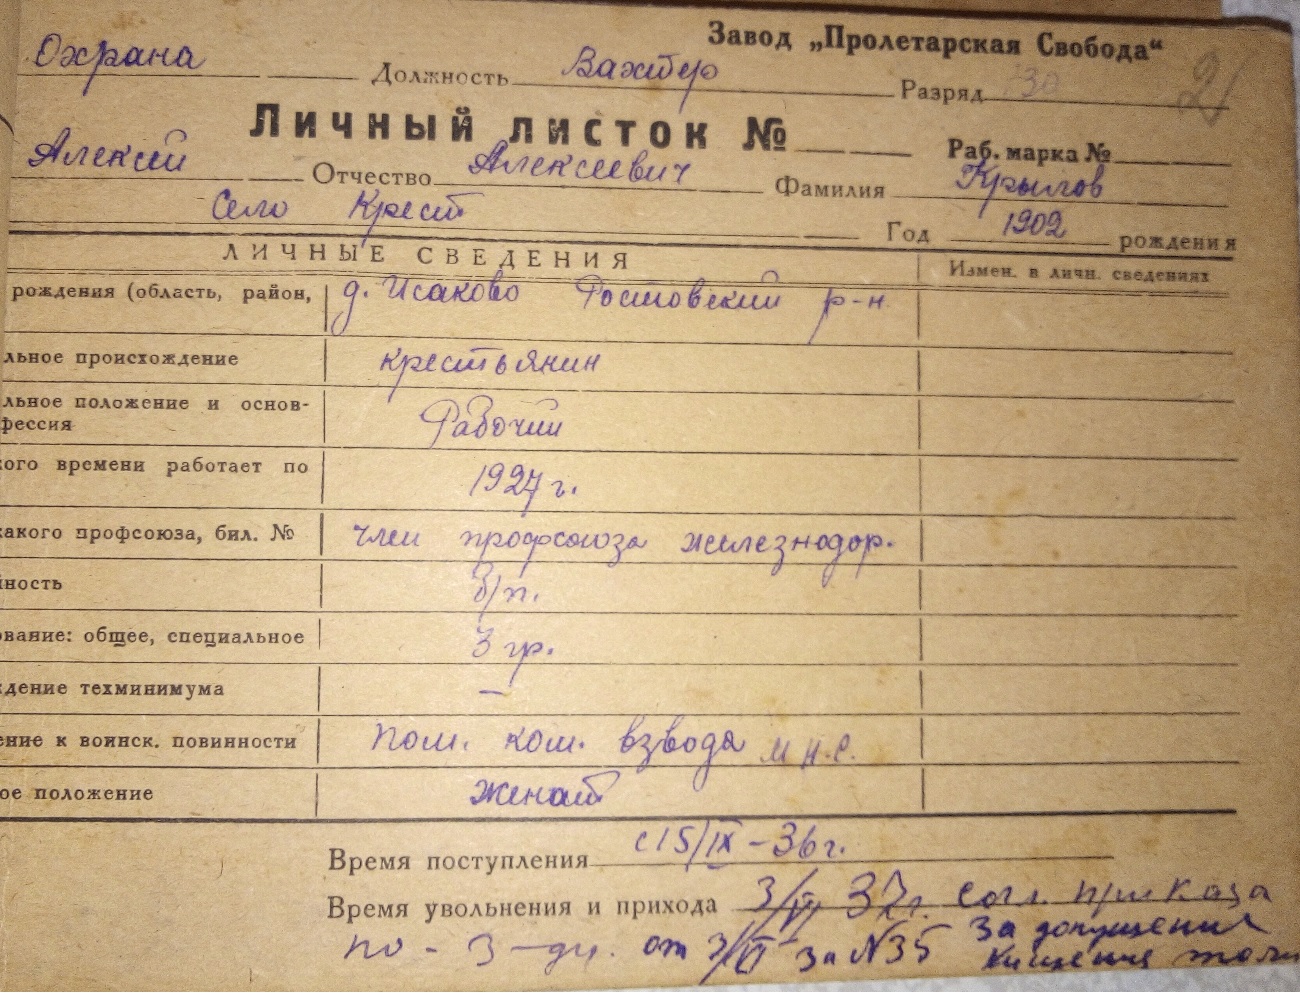 Завод „Пролетарская Свобода“
Охрана Должность Вахтер Разряд
Личный листок № Раб. марка №
Алексей Отчество Алексеевич Фамилия Крылов
Село Крест Год 1902 рождения
ЛИЧНЫЕ СВЕДЕНИЯ Измен. в личн. сведениях
рождения (область, район, д. Исаково Ростовский р-н
льное происхождение крестьянин
льное положение и основ-
фессия Рабочий
кого времени работает по 1927 г.
какого профсоюза, бил. № член профсоюза железнодор.
йность б/п.
ование: общее, специальное 3 гр.
ждение техминимума –
ение к воинск. повинности пом. ком. взвода м н.с.
ое положение женат
Время поступления с 15/IX – 36 г.
Время увольнения и прихода 3/VI 37г. согл. приказа
по - 3 - ду. от 3/VI за N35 За допущение
хищения